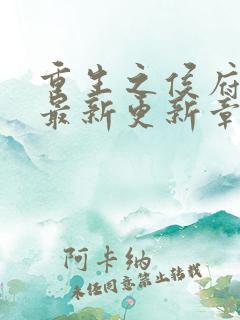 重生之侯府
最新更新章
阿卡纳
未经同意禁止转载